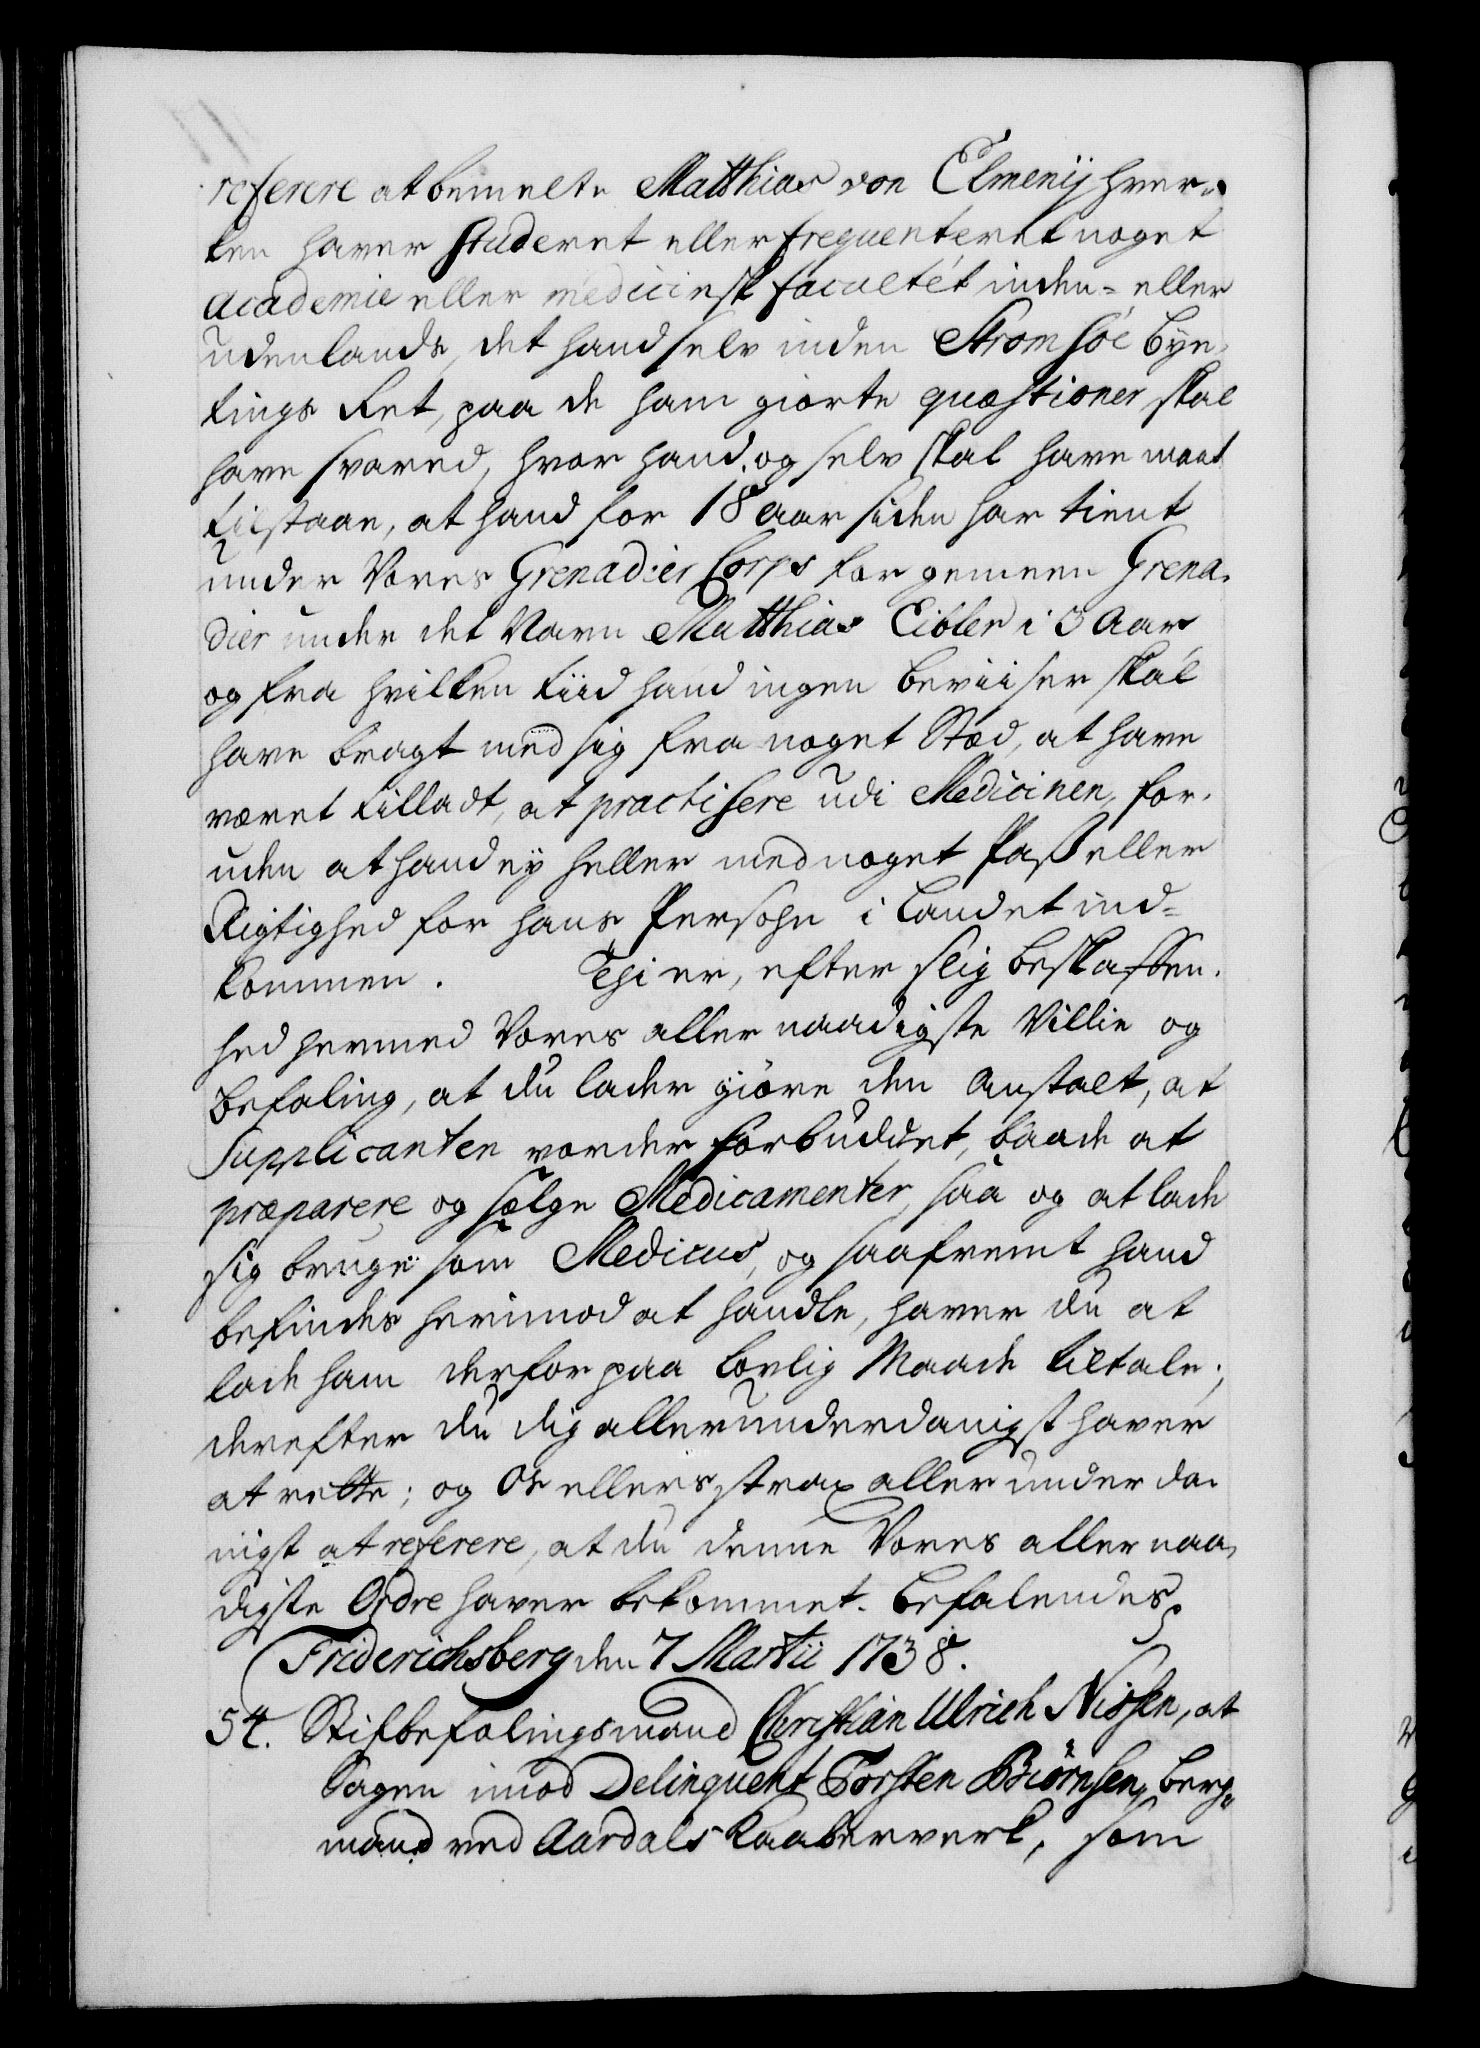 referere at bemelte Matthias von Elmenij hver-
ken haver studeret eller frequenteret noget
academie eller medicinsk facultét inden- eller
udenlands, det hand selv inden Strømsöe Bye-
tings Ret, paa de ham giorte quæstioner skal
have svared, hvor hand og selv skal have maat
tilstaae, at hand for 18 aar siden har tient
under Vores Grenadier Corps for gemeen Grena-
dier under det Navn Matthias Eibler i 3 Aar,
og fra hvilken tiid hand ingen beviiser skal
have bragt med sig fra noget Stæd, at have
været tilladt, at practisere udi Medicinen, for-
uden at hand ey heller med noget Pass eller
Rigtighed for hans Persohn i Landet ind-
kommen. Thi er, efter slig beskaffen-
hed hermed Vores allernaadigste Villie og
befaling, at du lader giöre den Anstalt, at
Supplicanten vorder forbuddet, baade at
præparere og sælge Medicamenter, saa og at lade
sig bruge som Medicus, og saafremt hand
befindes herimod at handle, haver du at
lade ham derfor paa lovlig Maade tiltale;
derefter du dig allerunderdanigst haver
at rette; og Os ellers strax allerunderda-
nigst at referere, at du denne Vores allernaa-
digste Ordre haver bekommet. Befalendes
Friderichsberg den 7 Martii 1738.
54. Stiftbefalingsmand Christian Ulrich Nissen, at
Sagen imod Delinquent Torsten Biörnsen, Berg-
mand ved Aardals Kaaberverk, som